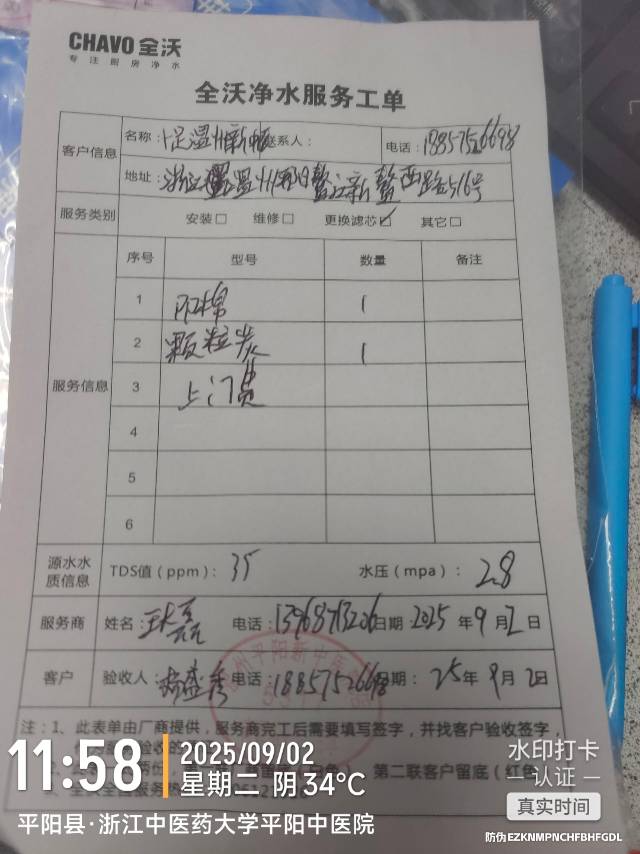 CHAVO 全沃
专注厨房净水
全沃净水服务工单
客户信息
名称: 十足温州新中 联系人: 电话: 18857526698
地址: 浙江 温州 鳌江新鳌西路516号
服务类别 安装□ 维修□ 更换滤芯☑ 其它□
服务信息
序号 型号 数量 备注
1 PP棉 1
2 颗粒炭 1
3 上门费
4
5
6
源水水质信息 TDS值(ppm): 35 水压(mpa): 2.8
服务商 姓名: 电话: 日期 2025 年 9 月 2 日
客户 验收人: 电话: 18857526698 日期: 25 年 9 月 2 日
州平阳新中
注:1、此表单由厂商提供,服务商完工后需要填写签字,并找客户验收签字,
第二联客户留底(红色
11:58 2025/09/02
星期二 阴 34°C
平阳县·浙江中医药大学平阳中医院
水印打卡
认证
真实时间
防伪 EZKNMPNCHFBHFGDL